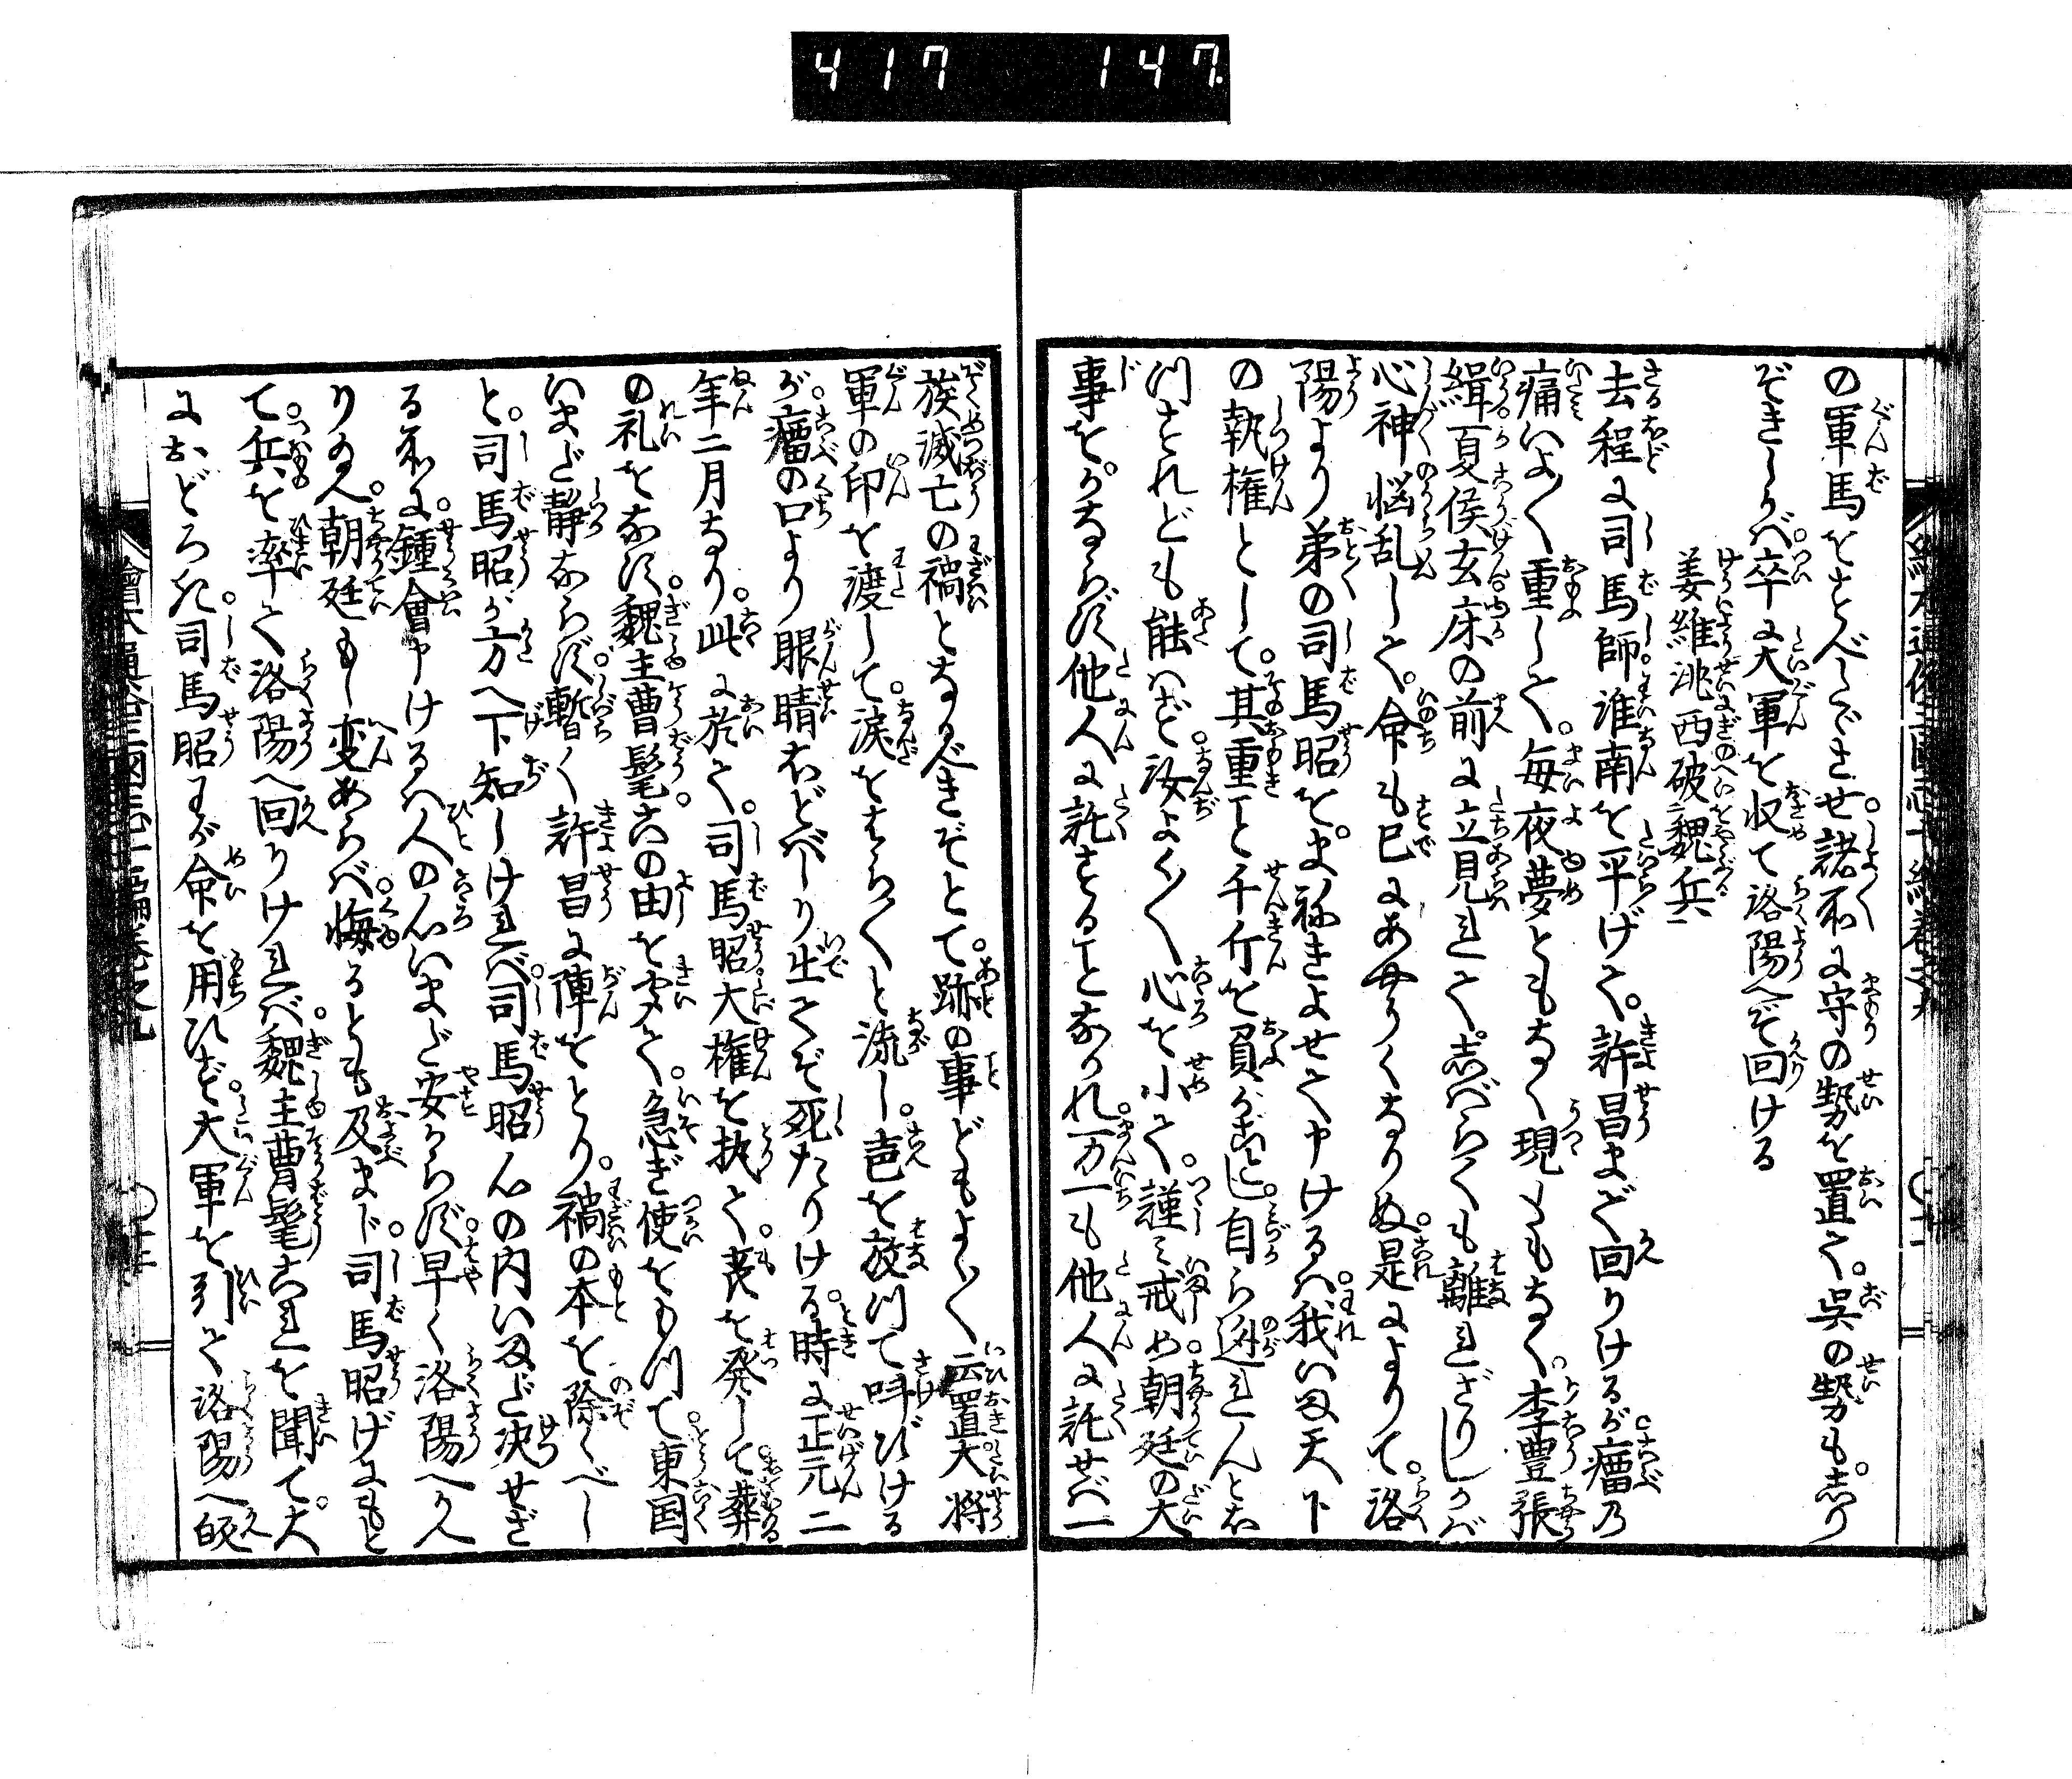 417 147.
の軍馬をとゞめさせ諸所に守の勢を置て。呉の勢も。志り
ぞきしかバ。卒に大軍を収て洛陽へぞ回ける
姜維洮西破魏兵
去程に司馬師淮南を平げて。許昌まで回りけるが瘤乃
痛いよ〱重しして。毎夜夢ともなく現ともなく。李豊張
緝夏侯玄床の前に立見えて。志ばらくも離れざりしかバ
心神悩乱して。命も已にあやうくなりぬ。是によりて。洛
陽より弟の司馬昭を。まねきよせて申けるハ。我いま天下
の執権として。其重こと千斤を負がごとし。自ら遜れんとお
川されども能ハず。汝よく〱心を小て。謹ミ戒め。朝廷の大
事を。かならず他人に託することなかれ。万一も他人に託せバ一
族滅亡の禍となるべきぞとて。跡の事どもよく〱云置大将
軍の印を渡して。涙をはら〱と流し。声を放川て叫びける
が。瘤の口より眼睛ほどばしり出てぞ死たりける。時に正元二
年二月なり。此に於て。司馬昭大権を執て。喪を発して。葬
の礼をなす。魏主曹髦。この由を聞て。急ぎ使をもつて。東国
いまだ静ならず。暫く許昌に陣をとり。禍の本を除くべし
と。司馬昭が方へ下知しければ。司馬昭心の内いまだ決せざ
る所に。鍾會申けるハ人の心いまだ安からず。早く洛陽へかへ
り玉へ。朝廷もし変あらバ。悔るとも及まじ。司馬昭げにもと
て。兵を率て洛陽へ回りければ。魏主曹髦これを聞て。大
におどろき。司馬昭わが命を用ひず。大軍を引て洛陽へ皈